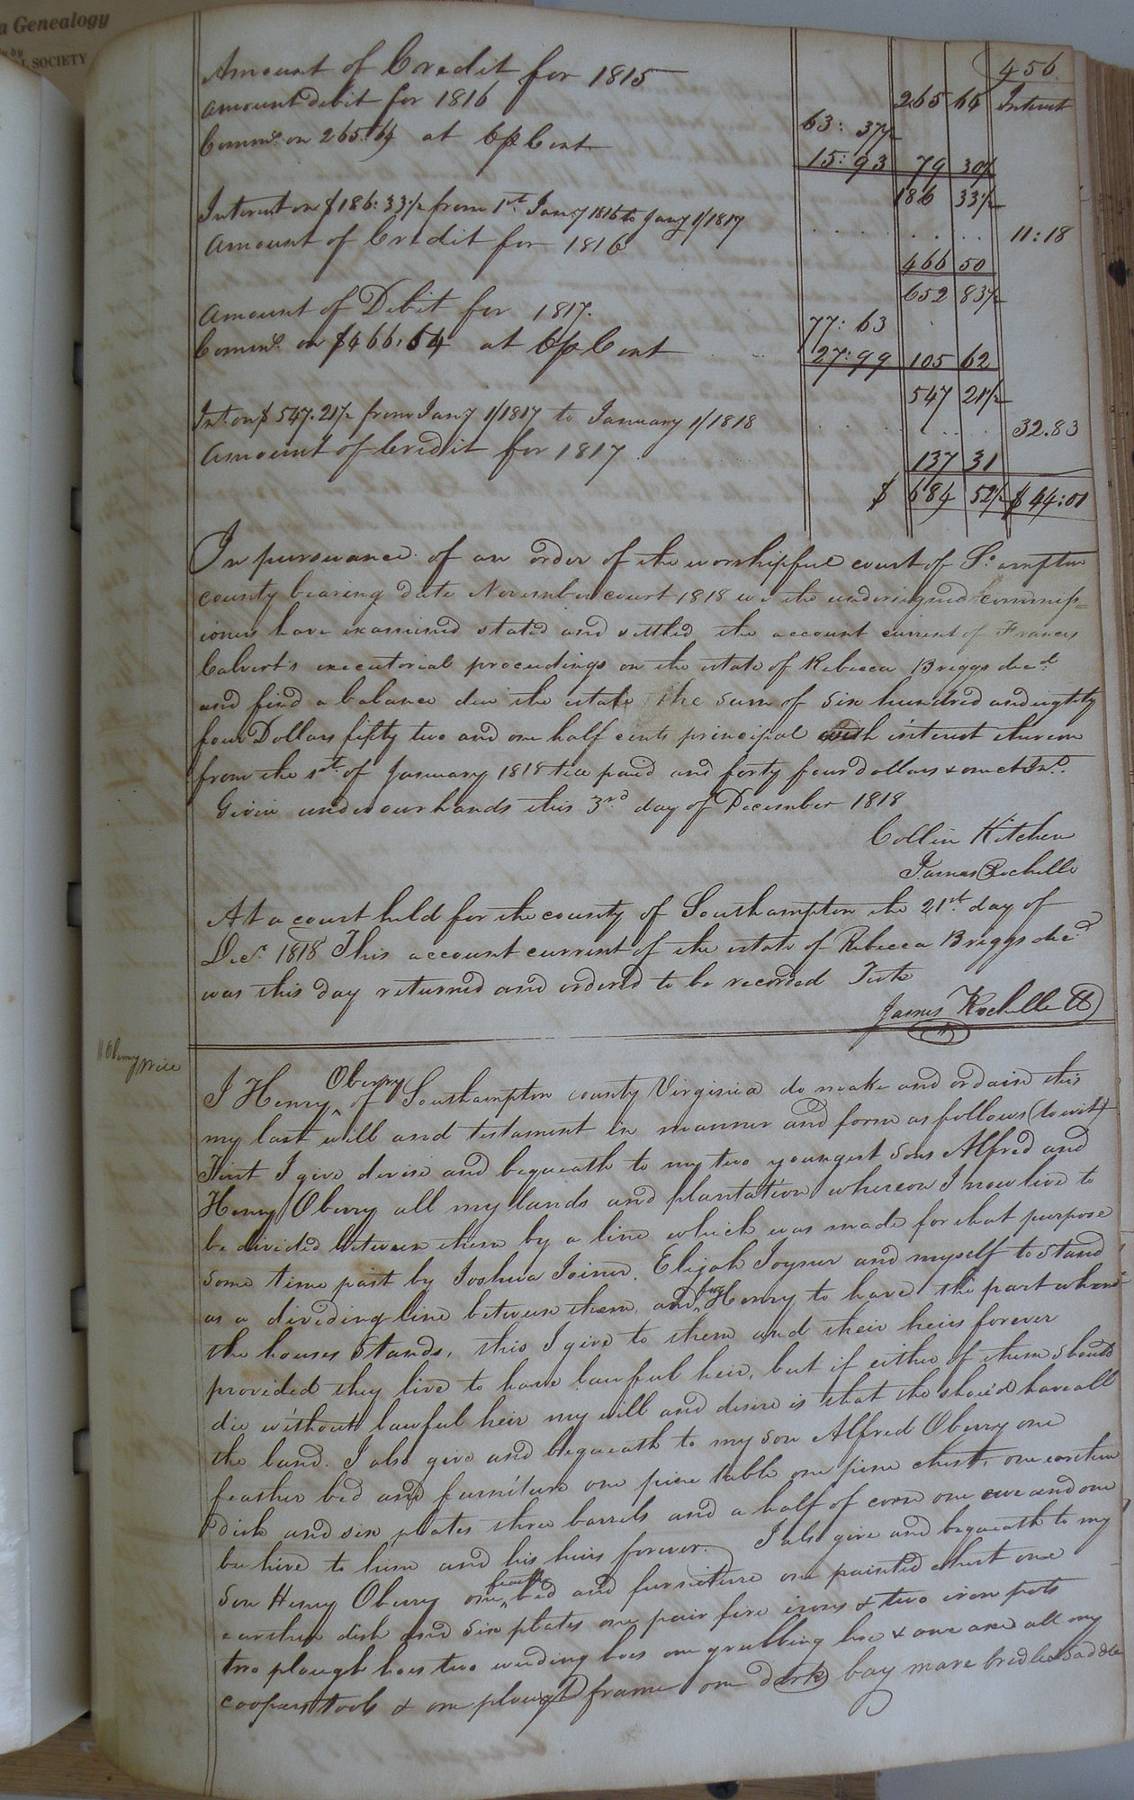 a Genealogy
SOCIETY
456
Amount of Credit for 1815 265 64 Interest
Amount debit for 1816 63: 37½
Comms. on 265.64 at 6 p Cent 15: 93 79 30½
186 33½
Interest on $186: 33½ from 1st Jany 1816 to Jany 1/1817 11:18
Amount of Credit for 1816 466 50
652 83½
Amount of Debit for 1817. 77: 63
Comms. on $466.54 at 6 p Cent 27:99 105 62
547 21½
Int. on $547.21½ from Jany 1/1817 to January 1/1818 32.83
Amount of Credit for 1817 137 31
$ 684 52½ $44:01
In pursuance of an order of the worshipful court of So. ampton
county bearing date November court 1818 we the undersigned commiss=
ioners have examined stated and settled the account current of Francis
Calvert's executorial proceedings on the estate of Rebecca Briggs decd.
and find a balance due the estate the sum of six hundred and eighty
four Dollars fifty two and one half cents principal with interest thereon
from the 1st of January 1818 till paid and forty four dollars & one ct Int.
Given under our hands this 3rd day of December 1818
Collin Kitchen
James Rochelle
At a court held for the county of Southampton the 21st. day of
Decr. 1818 This account current of the estate of Rebecca Briggs decd
was this day returned and ordered to be recorded Teste
James Rochelle
H Oberry Will
I Henry Oberry of Southampton county Virginia do make and ordain this
my last will and testament in manner and form as follows (to wit)
First I give devise and bequeath to my two youngest sons Alfred and
Henry Oberry all my lands and plantation whereon I now live to
be divided between them by a line which was made for that purpose
some time past by Joshua Joiner, Elijah Joyner and myself to stand
as a dividing line between them and Henry to have the part where
the houses stands, this I give to them and their heirs forever
provided they live to have lawful heir, but if either of them should
die without lawful heir my will and desire is that the should have all
the land. I also give and bequeath to my son Alfred Oberry one
feather bed and furniture one pine table one pine chest, one earthen
dish and six plates three barrels and a half of corn one ewe and one
be hive to him and his heirs forever. I also give and bequeath to my
son Henry Oberry one feather bed and furniture one painted chest one
earthen dish and six plates one pair fire irons & two iron pots
two plough hoes two weeding hoes one grubbing hoe & one axe all my
coopers tools & one plough frame one dark bay mare bridle & Saddle